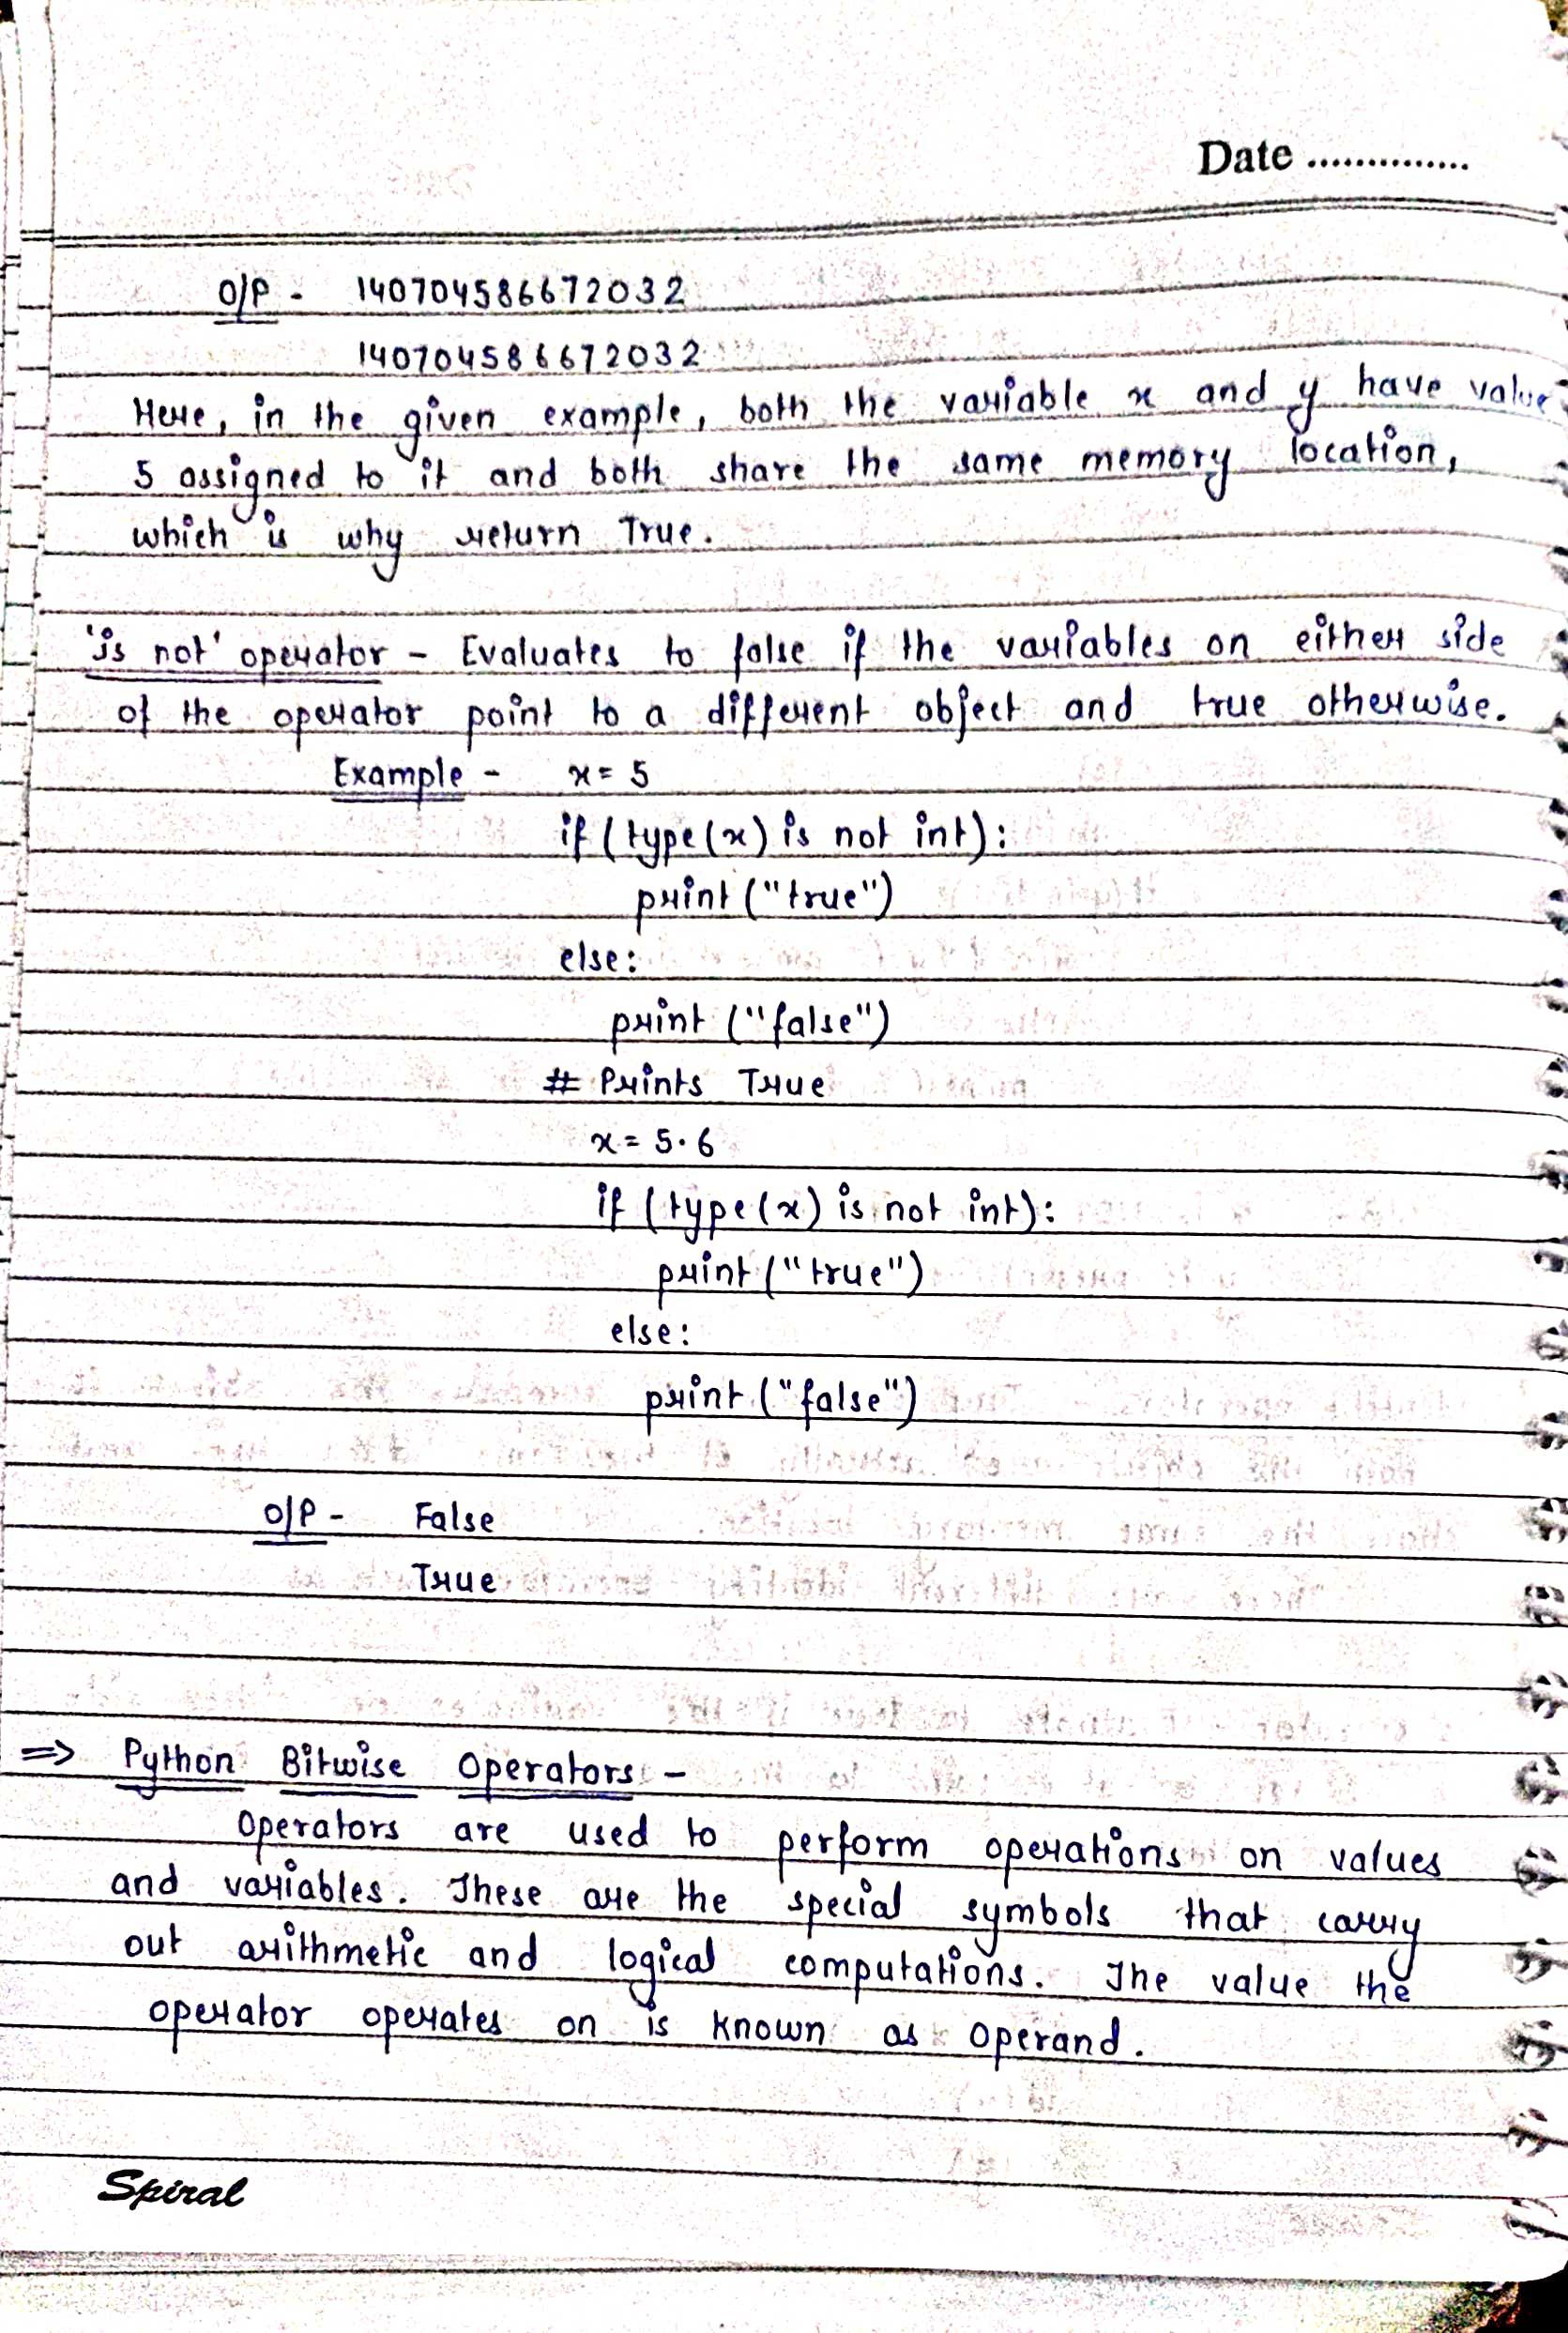 Date ..............
O/P - 140704586672032
140704586672032
Here, in the given example, both the variable x and y have value
5 assigned to it and both share the same memory location,
which is why return True.
'is not' operator - Evaluates to false if the variables on either side
of the operator point to a different object and true otherwise.
Example - x = 5
if (type(x) is not int):
print ("true")
else:
print ("false")
# Prints True
x = 5.6
if (type(x) is not int):
print ("true")
else:
print ("false")
O/P - False
True
⇒ Python Bitwise Operators -
Operators are used to perform operations on values
and variables. These are the special symbols that carry
out arithmetic and logical computations. The value the
operator operates on is known as Operand.
Spiral